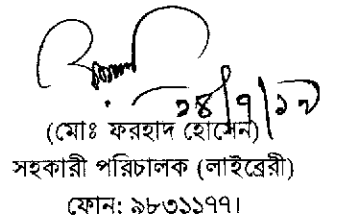 ১৪/৭/১৭
(মোঃ ফরহাদ হোসেন)
সহকারী পরিচালক (লাইব্রেরী)
ফোন: ৯৮৩১১৭৭।